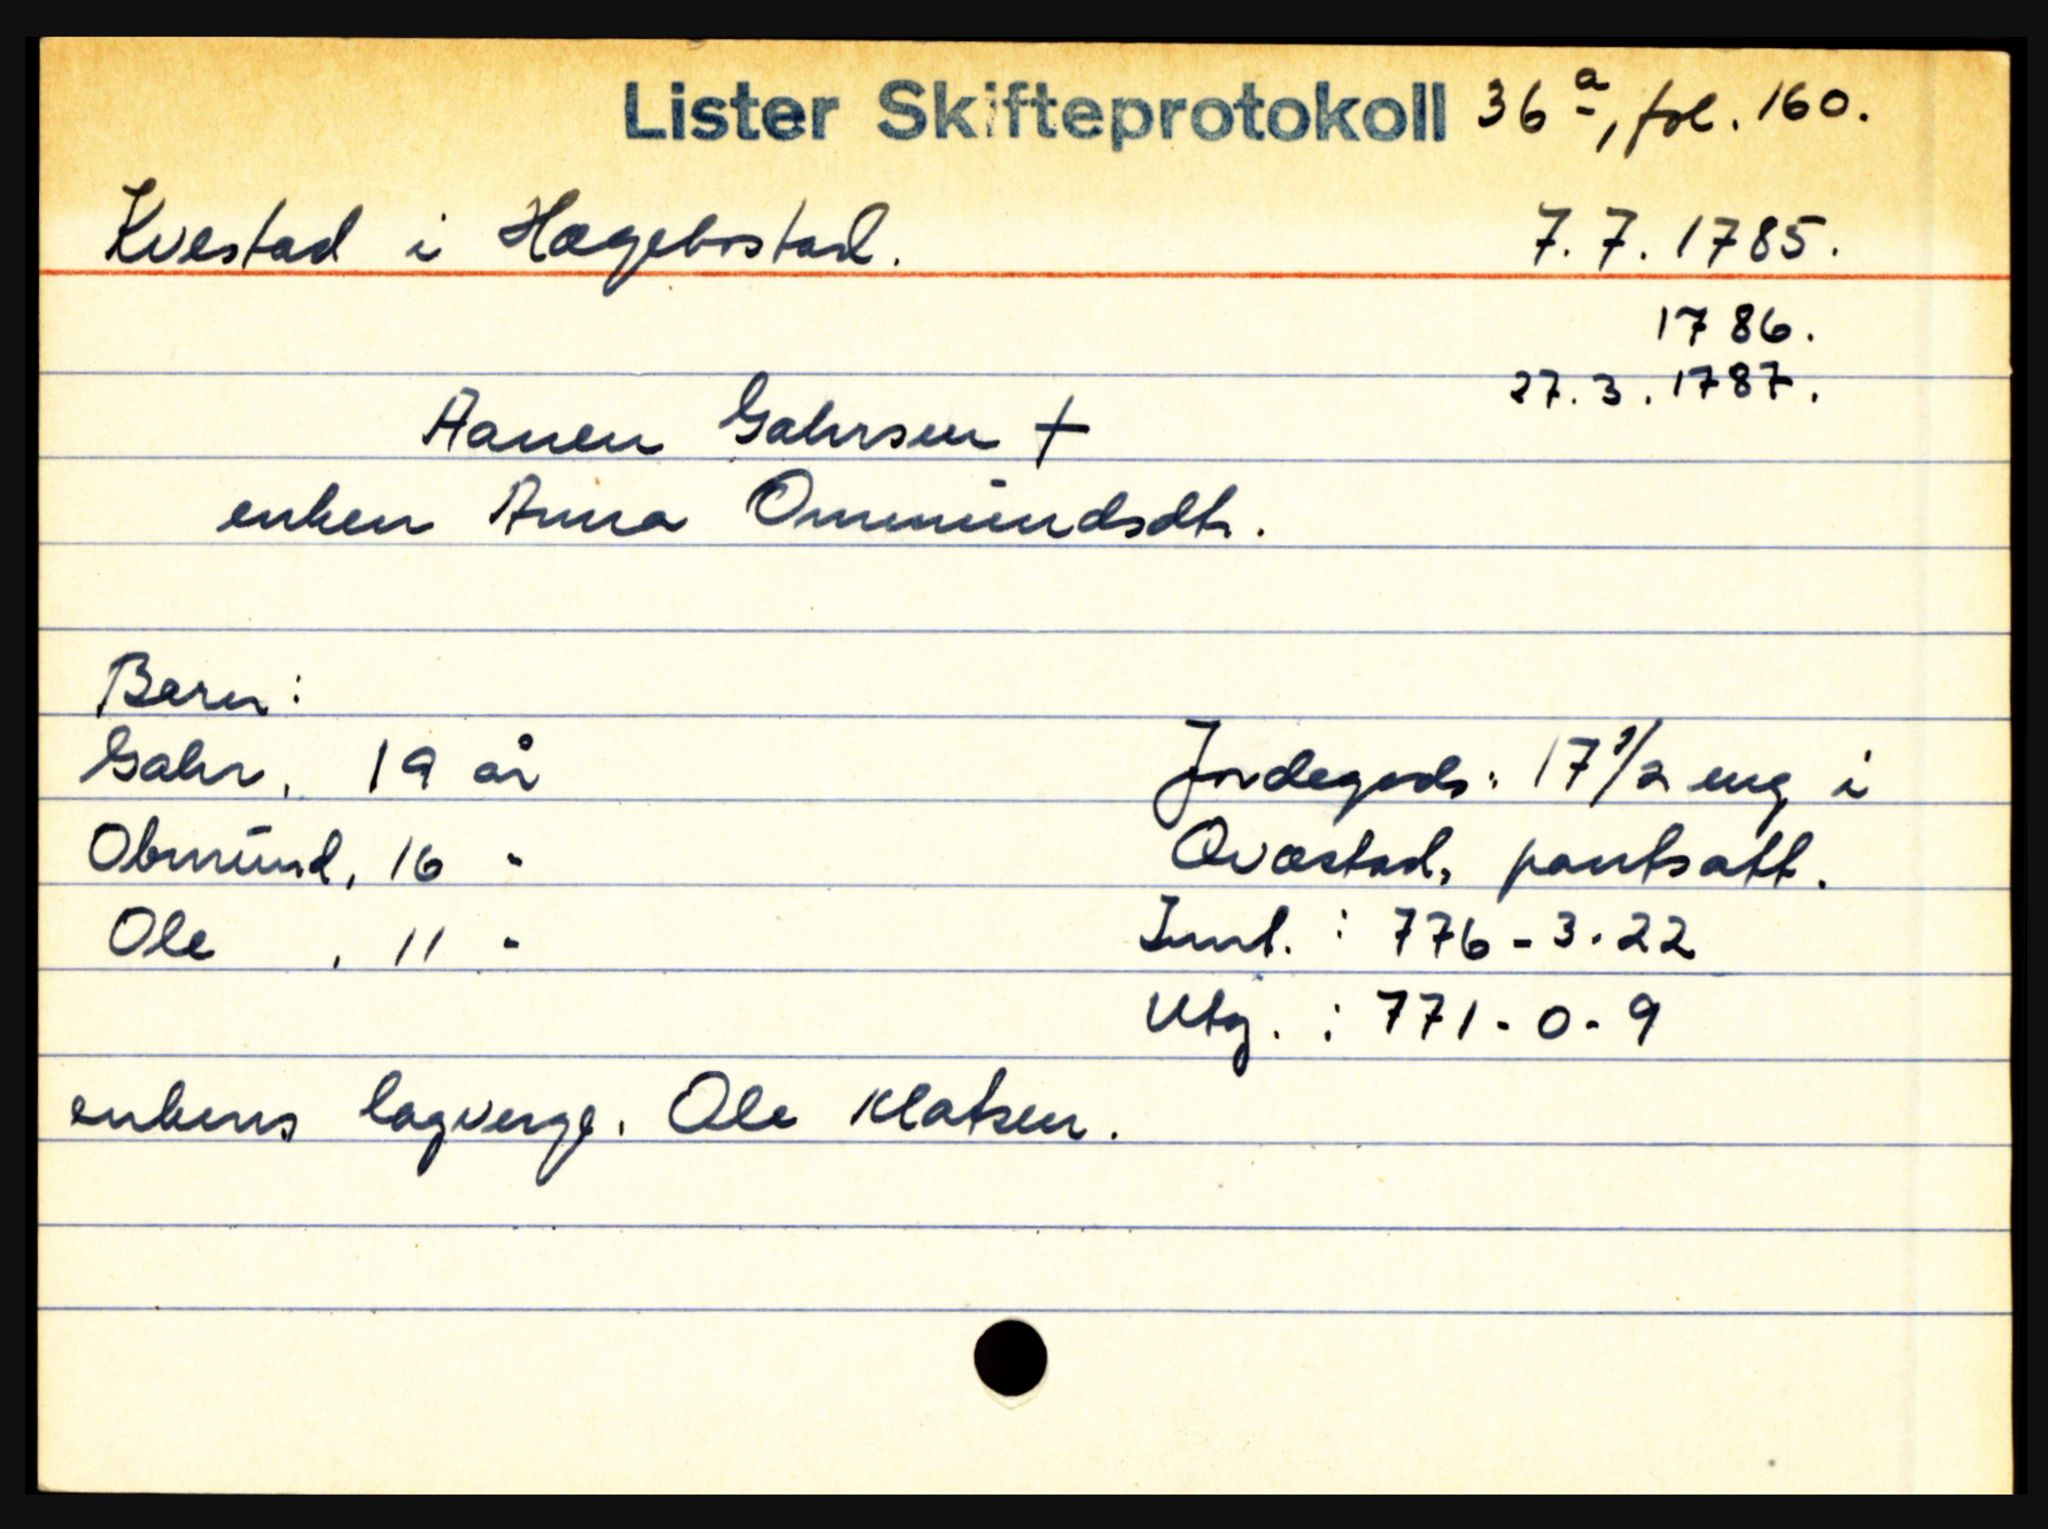 Lister Skifteprotokoll 36ª, fol. 160.
Kvestad i Hægebostad. 7.7.1785.
1786.
27.3.1787.
Aanen Gahrsen †
enken Anna Ommundsdtr.
Barn:
Gahr, 19 år
Obmund, 16 "
Ole , 11 "
Jordegods: 17 1/2 eng i
Qvæstad, pantsatt.
Innt. : 776-3-22
Utg. : 771-0-9
enkens lagverge, Ole Klatsen.